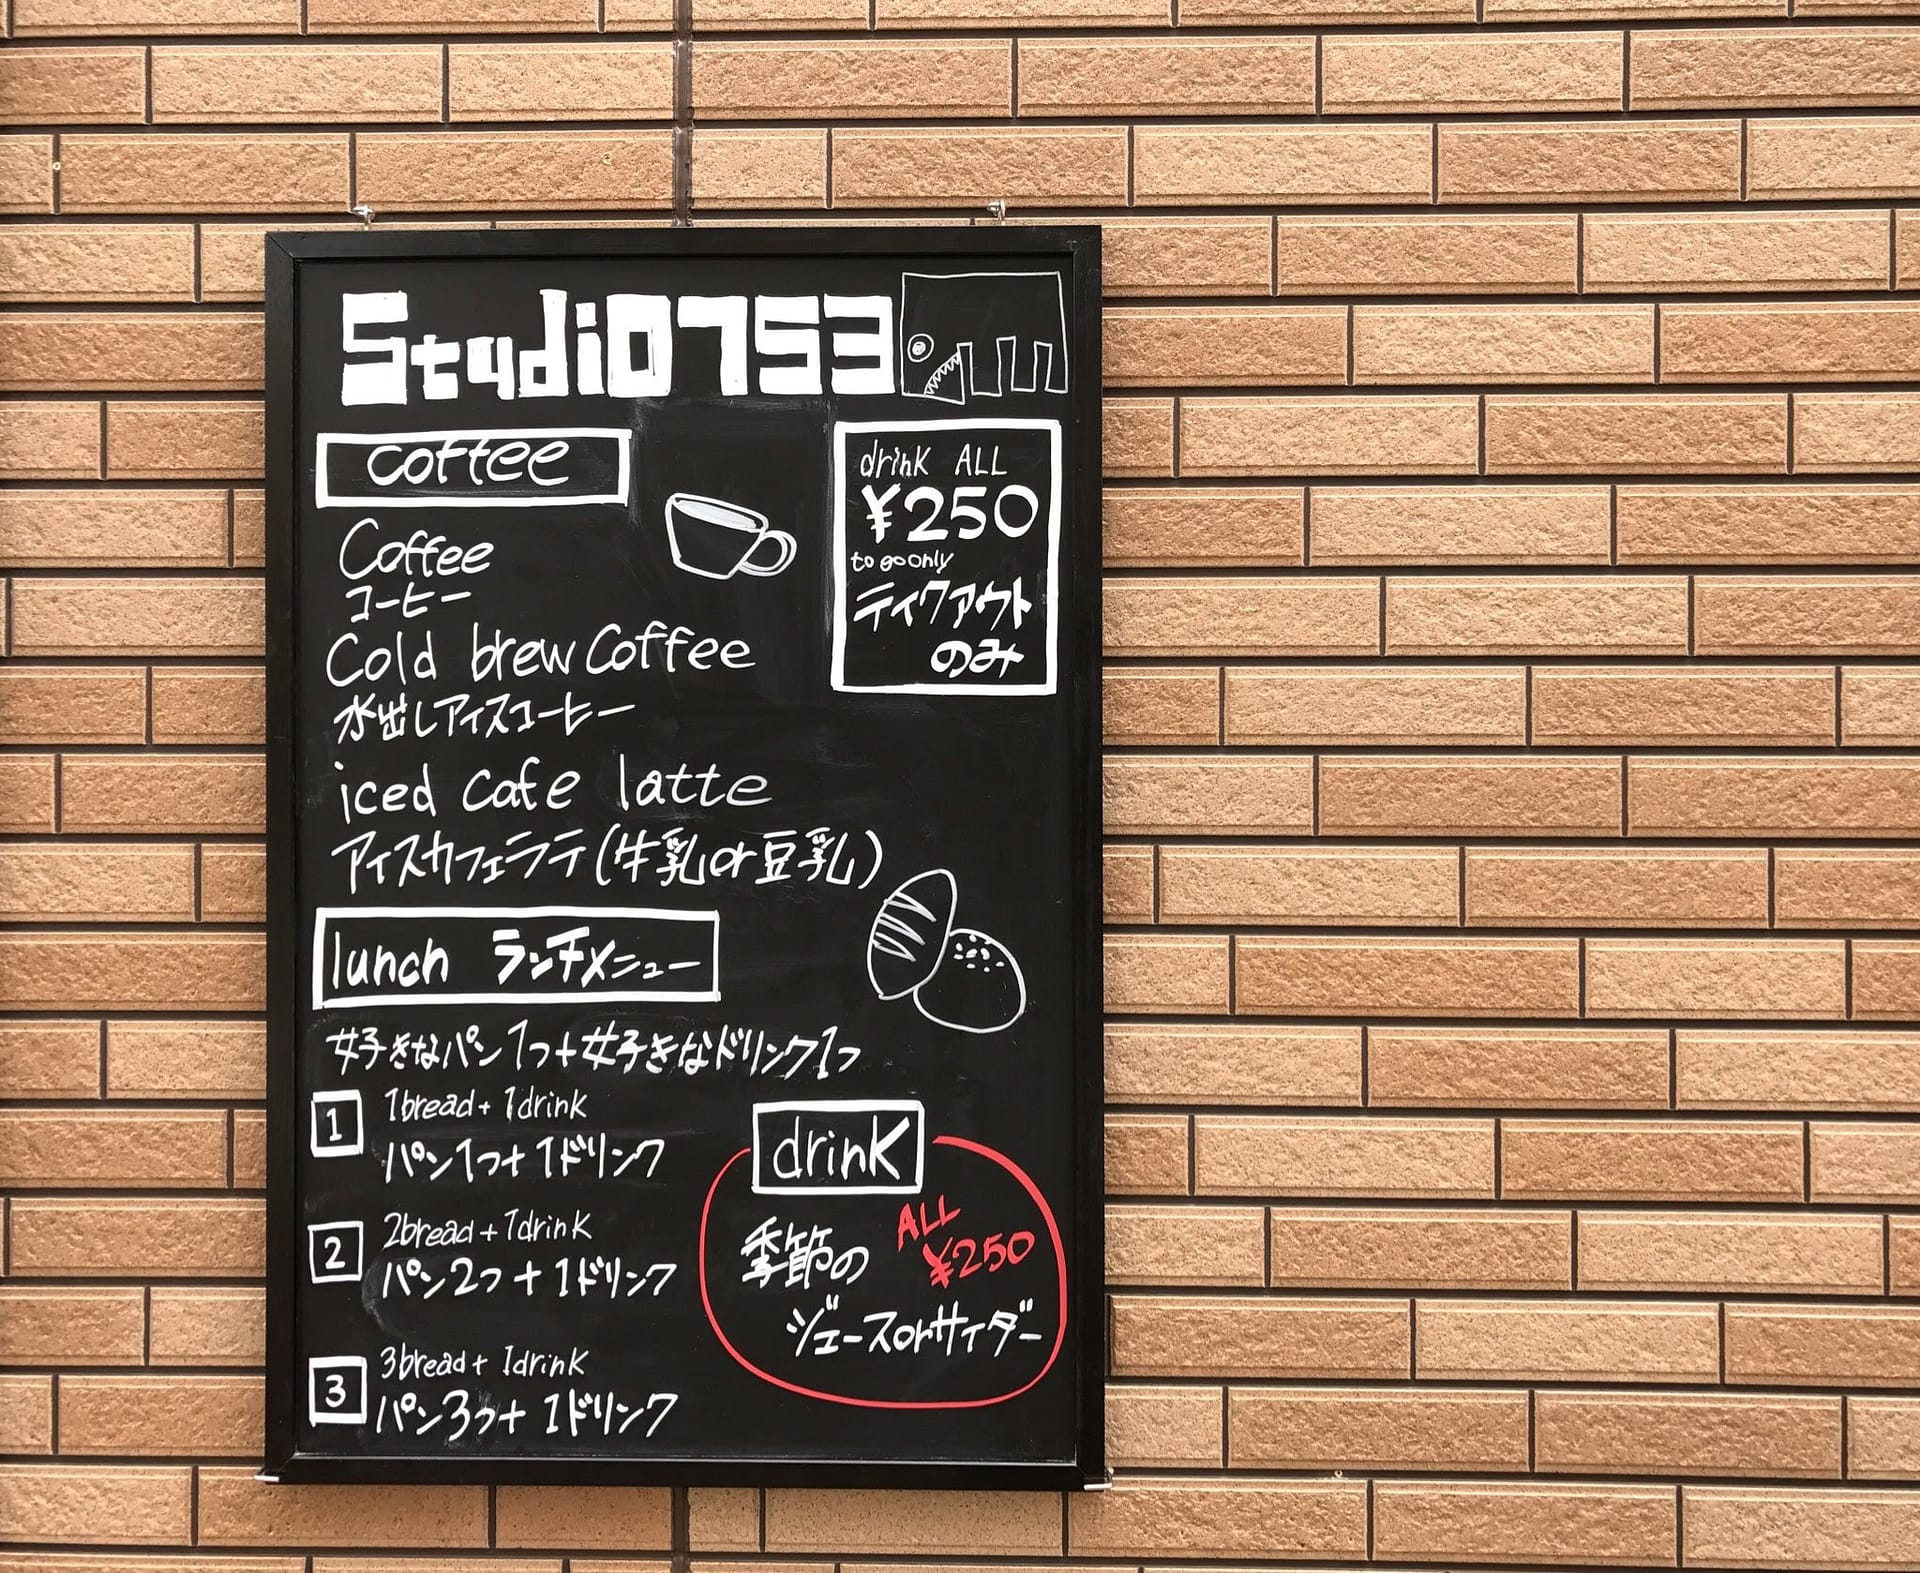 Studio753
coffee
Coffee
コーヒー
Cold brew Coffee
水出しアイスコーヒー
iced cafe latte
アイスカフェラテ(牛乳or豆乳)
drink ALL
¥250
to go only
テイクアウト
のみ
lunch ランチメニュー
好きなパン1つ+好きなドリンク1つ
1
1bread+1drink
パン1つ+1ドリンク
2
2bread+1drink
パン2つ+1ドリンク
3
3bread+1drink
パン3つ+1ドリンク
drink
ALL
¥250
季節の
ジュースorサイダー